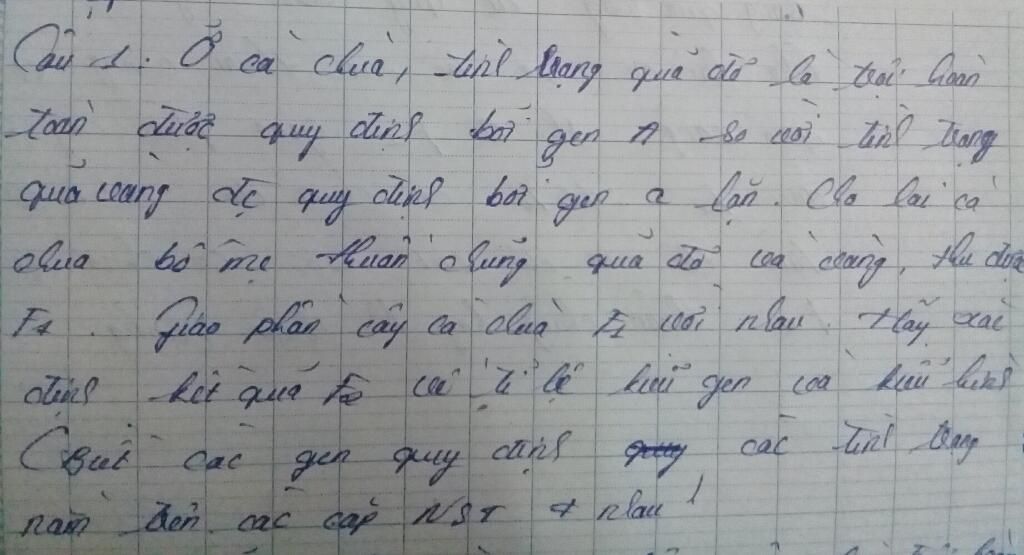 Câu 1. Ở cà chua, tính trạng quả đỏ là trội hoàn
toàn được quy định bởi gen A so với tính trạng
quả vàng đc quy định bởi gen a lặn. Cho lai cà
chua bố mẹ thuần chủng quả đỏ và vàng, thu được
F1. Giao phấn cây cà chua F1 với nhau. Hãy xác
định kết quả F2 về tỉ lệ kiểu gen và kiểu hình
(Biết các gen quy định các tính trạng
nằm trên các cặp NST ≠ nhau)